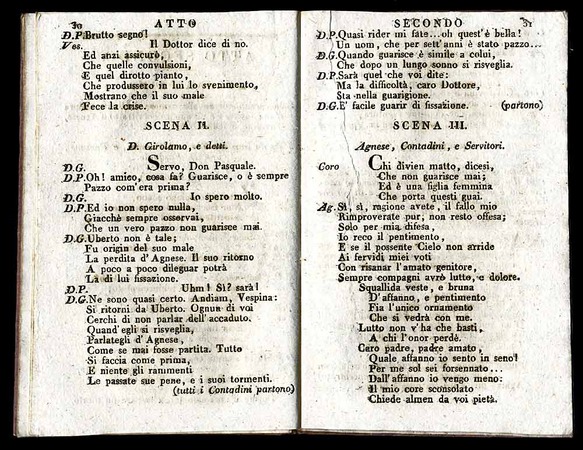 30 ATTO
D.P. Brutto segno!
Ves. Il Dottor dice di no.
Ed anzi assicurò,
Che quelle convulsioni,
E quel dirotto pianto,
Che produssero in lui lo svenimento,
Mostrano che il suo male
Fece la crise.
SCENA II.
D. Girolamo, e detti.
D.G. Servo, Don Pasquale.
D.P. Oh! amico, cosa fa? Guarisce, o è sempre
Pazzo com'era prima?
D.G. Io spero molto.
D.P. Ed io non spero nulla,
Giacchè sempre osservai,
Che un vero pazzo non guarisce mai.
D.G. Uberto non è tale;
Fu origin del suo male
La perdita d'Agnese. Il suo ritorno
A poco a poco dileguar potrà
La di lui fissazione.
D.P. Uhm! Sì? sarà!
D.G. Ne sono quasi certo. Andiam, Vespina:
Si ritorni da Uberto. Ognun di voi
Cerchi di non parlar dell'accaduto.
Quand'egli si risveglia,
Parlategli d'Agnese,
Come se mai fosse partita. Tutto
Si faccia come prima,
E niente gli rammenti
Le passate sue pene, e i suoi tormenti.
(tutti i Contadini partono)
SECONDO 31
D.P. Quasi rider mi fate...oh quest'è bella!
Un uom, che per sett'anni è stato pazzo...
D.G. Quando guarisce è simile a colui,
Che dopo un lungo sonno si risveglia.
D.P. Sarà quel che voi dite:
Ma la difficoltà, caro Dottore,
Sta nella guarigione.
D.G. E' facile guarir di fissazione. (partono)
SCENA III.
Agnese, Contadini, e Servitori.
Coro Chi divien matto, dicesi,
Che non guarisce mai;
Ed è una figlia femmina
Che porta questi guai.
Ag. Sì, sì, ragione avete, il fallo mio
Rimproverate pur; non resto offesa;
Solo per mia difesa,
Io reco il pentimento,
E se il possente Cielo non arride
Ai fervidi miei voti
Con risanar l'amato genitore,
Sempre compagni avrò lutto, e dolore.
Squallida veste, e bruna
D'affanno, e pentimento
Fia l'unico ornamento
Che si vedrà con me.
Lutto non v'ha che basti,
A chi l'onor perdè.
Caro padre, padre amato,
Quale affanno io sento in seno!
Per me sol sei forsennato...
Dall'affanno io vengo meno:
Il mio core sconsolato
Chiede almen da voi pietà.